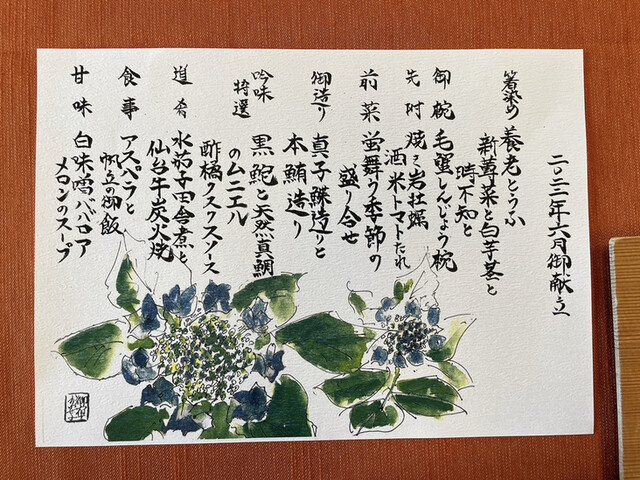 二〇二二年六月御献立
箸染め 養老とうふ
新蓴菜と白芋茎と
時不知と
御椀 毛蟹しんじょう椀
先附 焼き岩牡蠣
酒米トマトたれ
前菜 蛍舞う季節の
盛り合せ
御造り 真子鰈造りと
本鮪造り
吟味特選 黒鮑と天然真鯛
のムニエル
酢橘クスクスソース
肴 水茄子田舎煮と
仙台牛炭火焼
食事 アスパラと
帆立の御飯
甘味 白味噌ババロア
メロンのスープ